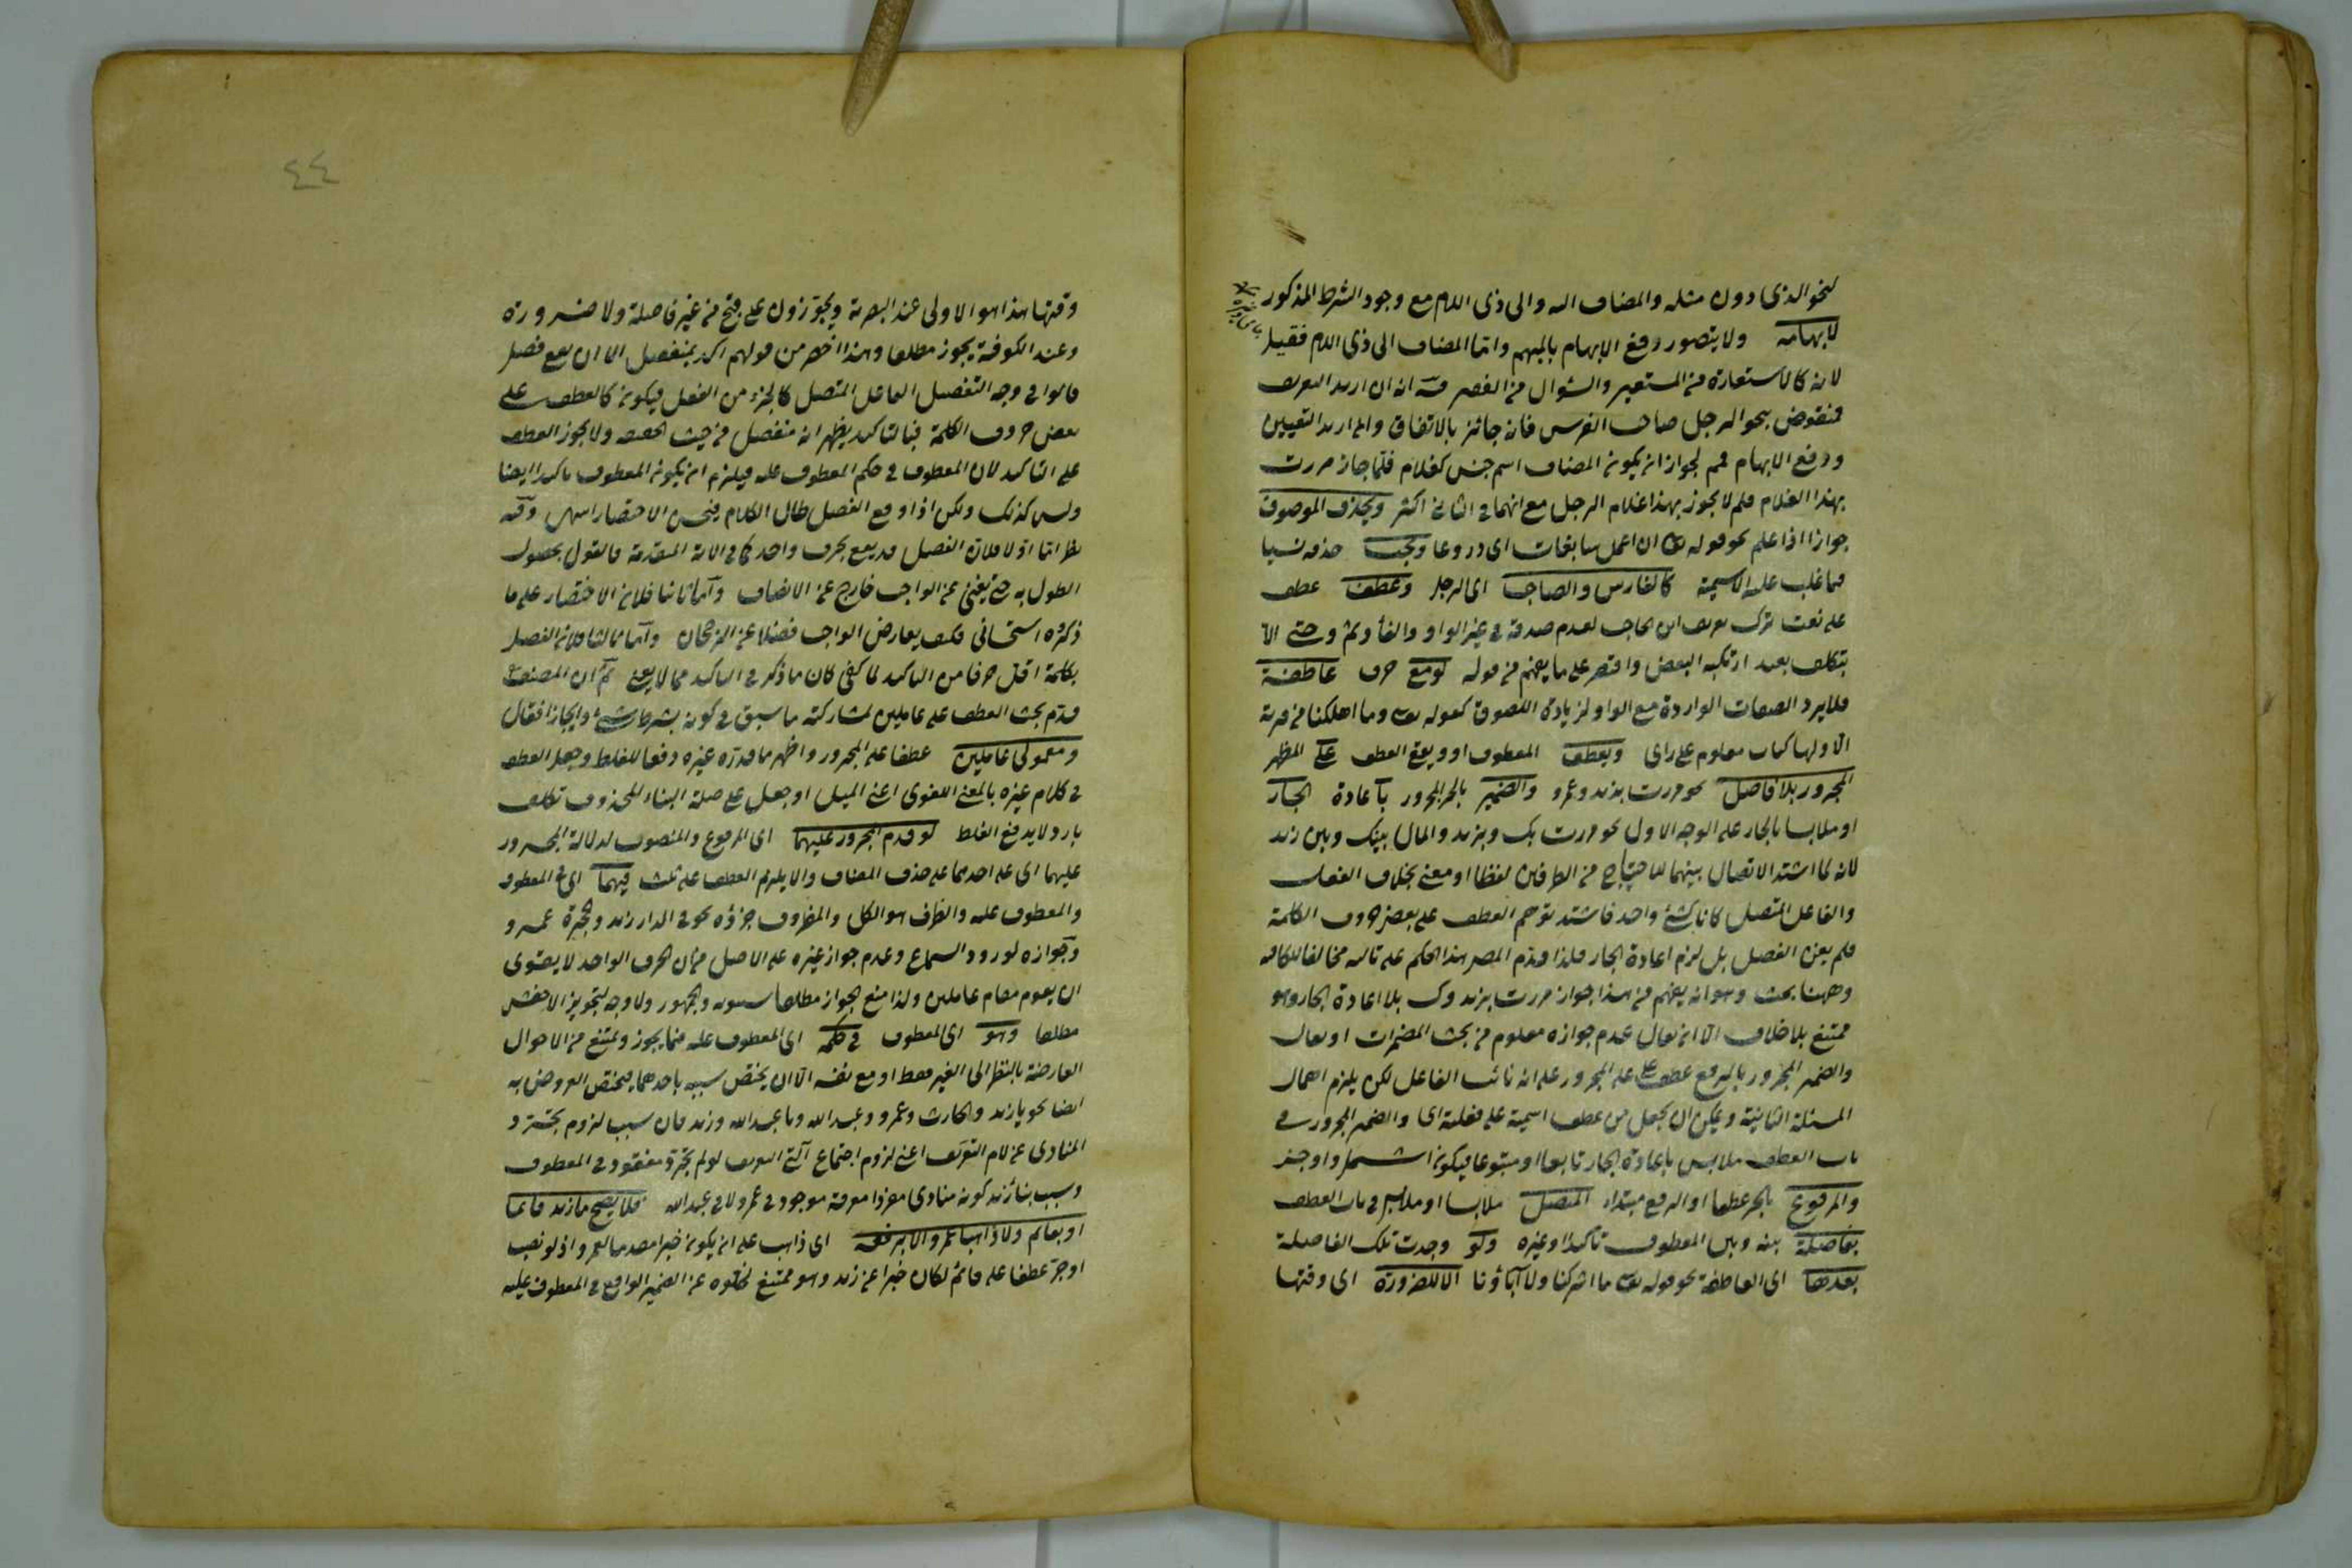 لنحو الذى دون مثله والمضاف اليه والى ذى اللام مع وجود الشرط المذكور
لابهامه ولا يتصور رفع الابهام بالمبهم واما المضاف الى ذى اللام فقيل
لانه كالاستعارة من المستعير والسوال من الفقير وفيه انه ان اريد التعريف
فمنقوض بنحو الرجل صاحب الفرس فانه جائز بالاتفاق وان اريد التعيين
ورفع الابهام فمم لجواز ان يكون المضاف اسم جنس كغلام فلما جاز مررت
بهذا الغلام فلم لا يجوز بهذا غلام الرجل مع انهما فى الثانى اكثر ويحذف الموصوف
جوازا اذا علم نحو قوله تع ان اعمل سابغات اى دروعا ويجب حذفه نسيا
فيما غلب عليه الاسمية كالفارس والصاحب اى الرجل وعطف عطف
على نعت ترك تعريف ابن الحاجب لعدم صدقه فى غير الواو والفاء وثم وحتى الا
بتكلف بعيد ارتكبه البعض واقتصر على ما يفهم من قوله لو مع حرف عاطفة
فلا يرد الصفات الواردة مع الواو لزيادة اللصوق كقوله تع وما اهلكنا من قرية
الا ولها كتاب معلوم على راى ويعطف المعطوف او ويقع العطف على المظهر
المجرور بلا فاصل نحو مررت بزيد وعمرو والضمير بالجر المجرور باعادة الجار
او ملابسا بالجار على الوجه الاول نحو مررت بك وبزيد والمال بينك وبين زيد
لانه لما اشتد الاتصال بينهما للاحتياج من الطرفين لفظا او معنى بخلاف الفعل
والفاعل المتصل كانا كشئ واحد فاشتد توهم العطف على بعض حروف الكلمة
فلم يغن الفصل بل لزم اعادة الجار فلذا قدم المصر هذا الحكم على تاليه مخالفا للكافيه
وههنا بحث وهو انه يفهم من هذا جواز مررت بزيد وك بلا اعادة الجار وهو
ممتنع بلا خلاف الا ان يقال عدم جوازه معلوم من بحث المضمرات او يقال
والضمير المجرور بالرفع عطف على المجرور على انه نائب الفاعل لكن يلزم اهمال
المسئلة الثانية ويمكن ان يجعل من عطف اسمية على فعلية اى والضمير المجرور فى
باب العطف ملابس باعادة الجار تابعا او متبوعا فيكون اشمل واوجز
والمرفوع بالجر عطفا او الرفع مبتدا المتصل ملابسا او ملابس فى باب العطف
بفاصلة بينه وبين المعطوف تأكيدا وغيره ولو وجدت تلك الفاصلة
بعدها اى العاطفة نحو قوله تع ما اشركنا ولا آباؤنا الا للضرورة اى وقتها
٤٤
وقتها هذا هو الاولى عند البصرية ويجوزون على قبح من غير فاصلة ولا ضرورة
وعند الكوفية يجوز مطلقا وهذا اخصر من قولهم اكد بمنفصل الا ان يقع فصل
قالوا فى وجه التفصيل الفاعل المتصل كالجزء من الفعل فيكون كالعطف على
بعض حروف الكلمة فبالتاكيد يظهر انه منفصل من حيث الحقيقة ولا يجوز العطف
على التاكيد لان المعطوف فى حكم المعطوف عليه فيلزم ان يكون المعطوف تاكيدا ايضا
وليس كذلك ولكن اذا وقع الفصل طال الكلام فحسن الاختصار وفيه
نظر اما اولا فلان الفصل قد يقع بحرف واحد كما فى الاية المتقدمة فالقول بحصول
الطول به حتى يغنى عن الواجب خارج عن الانصاف واما ثانيا فلان الاختصار على ما
ذكروه استحسانى فكيف يعارض الواجب فضلا عن الرجحان واما ثالثا فلان الفصل
بكلمة اقل حرفا من التاكيد لما كفى كان ما ذكر فى التاكيد مما لا يعنى ثم ان المصنف
قدم بحث العطف على عاملين لمشاركته ما سبق فى كونه بشرط شئ وايجازا فقال
ومعمولى عاملين عطفا على المجرور واظهر ما قدره غيره دفعا للغلط وجعل العطف
فى كلام غيره بالمعنى اللغوى اعنى الميل او جعل على صلة البناء المحذوف تكلف
بارد لا يدفع الغلط لو قدم المجرور عليهما اى المرفوع والمنصوب لدلالة المجرور
عليهما اى على احدهما على حذف المضاف والا يلزم العطف على ثلث فيهما اى فى المعطوف
والمعطوف عليه والظرف هو الكل والمظروف جزؤه نحو فى الدار زيد والحجرة عمرو
وجوازه لورود السماع وعدم جواز غيره على الاصل من ان الحرف الواحد لا يقوى
ان يقوم مقام عاملين ولذا منع الجواز مطلقا سيبويه والجمهور ولا وجه لتجويز الاخفش
مطلقا وهو اى المعطوف فى حكمه اى المعطوف عليه فيما يجوز ويمتنع من الاحوال
العارضة بالنظر الى الغير فقط او مع نفسه الا ان يختص سببه باحدهما فيختص العروض به
ايضا نحو يا زيد والحارث وعمرو وعبد الله ويا عبد الله وزيد فان سبب لزوم تجرد
المنادى عن لام التعريف اعنى لزوم اجتماع آلتى التعريف لو لم يتجرد مفقود فى المعطوف
وسبب بناء زيد كونه منادى مفردا معرفة موجود فى عمرو لا فى عبد الله فلا يصح ما زيد قائما
او بقائم ولا ذاهبا عمرو الا برفعه اى ذاهب على ان يكون خبرا مقدما لعمرو اذ لو نصب
او جر عطفا على قائم لكان خبرا عن زيد وهو ممتنع لخلوه عن الضمير الواقع فى المعطوف عليه